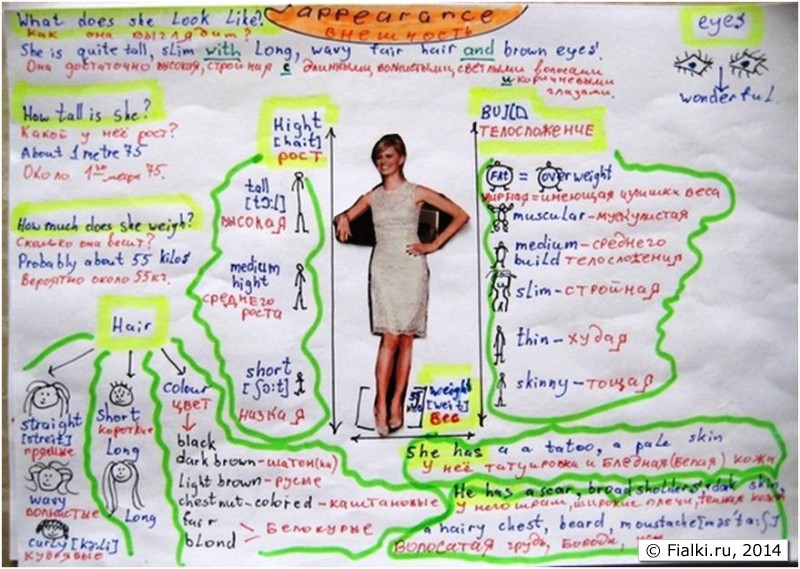 appearance
внешность
What does she Look Like?
Как она выглядит?
She is quite tall, slim with Long, wavy fair hair and brown eyes.
Она достаточно высокая, стройная с длинными, волнистыми, светлыми волосами
и коричневыми
глазами.
eyes
wonderful
How tall is she?
Какой у неё рост?
About 1 metre 75
Около 1 метра 75.
How much does she weigh?
Сколько она весит?
Probably about 55 kilos
Вероятно около 55 кг.
Hight
[hait]
рост
tall
[tɔ:l]
высокая
medium
hight
среднего
роста
short
[ʃɔ:t]
низкая
BUILD
телосложение
FAt = OVerweight
имеющая излишки веса
muscular-мускулистая
medium-среднего
build телосложения
slim-стройная
thin-худая
skinny-тощая
weight
[weit]
вес
Hair
straight
[streit]
прямые
wavy
волнистые
curly [kə:li]
кудрявые
Short
короткие
Long
Long
Colour
цвет
black
dark brown-шатен(ка)
light brown-русые
chestnut-colored-каштановые
fair
blond
Белокурые
She has a a tatoo, a pale skin
У неё татуировка и бледная (белая) кожа
He has a scar, broad sholders, dark skin,
У него шрам, широкие плечи, тёмная кожа
a hairy chest, beard, moustache [məs'ta:ʃ]
Волосатая грудь, борода,
© Fialki.ru, 2014